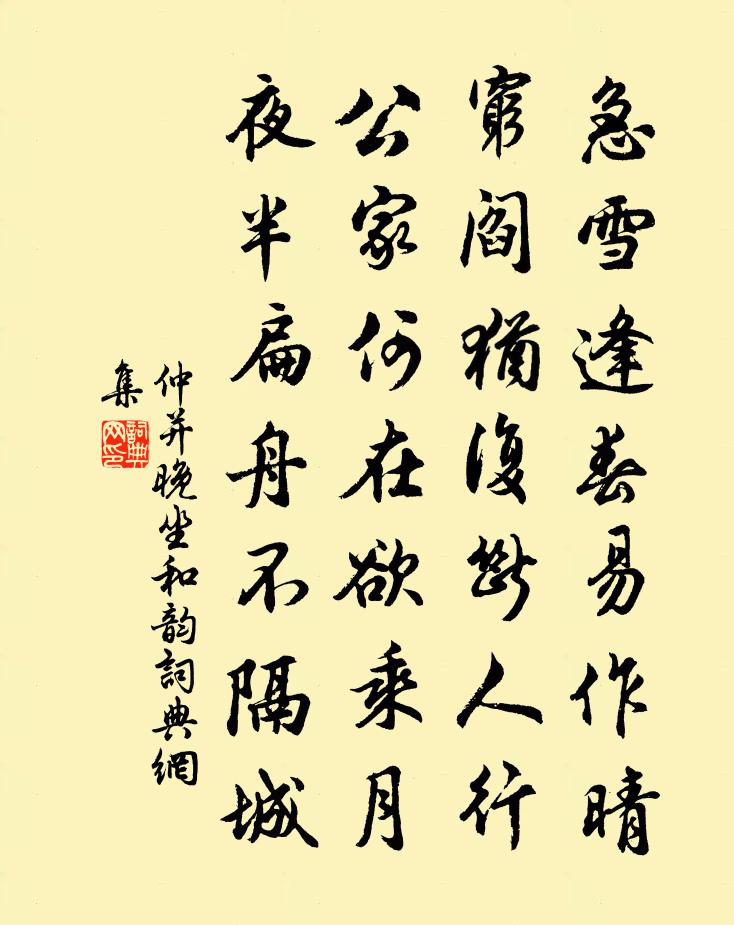 急雪逢春易作晴
窮閻猶復斷人行
公家何在欲乘月
夜半扁舟不隔城
仲并晚坐和韵詞典網
集
詞典
网印